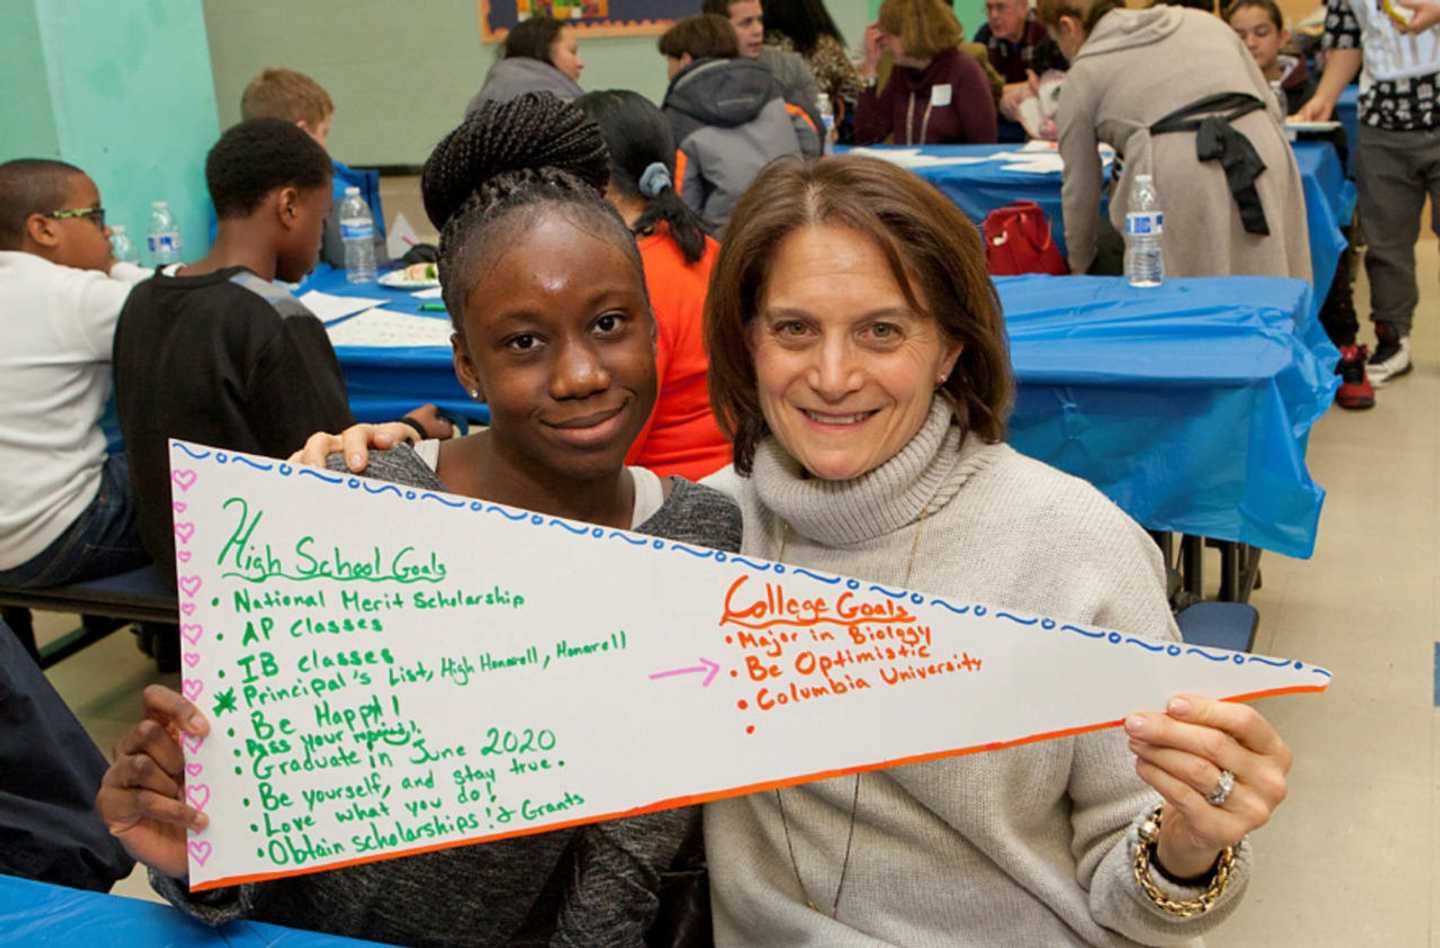 High School Goals
• National Merit Scholarship
• AP Classes
• IB classes
* Principal's List, High Honor roll, Honor roll
• Be Happy!
• Pass your
• Graduate in June 2020
• Be yourself, and stay true.
• Love what you do!
• Obtain scholarships! & Grants
College Goals
• Major in Biology
• Be Optimistic
• Columbia University
•